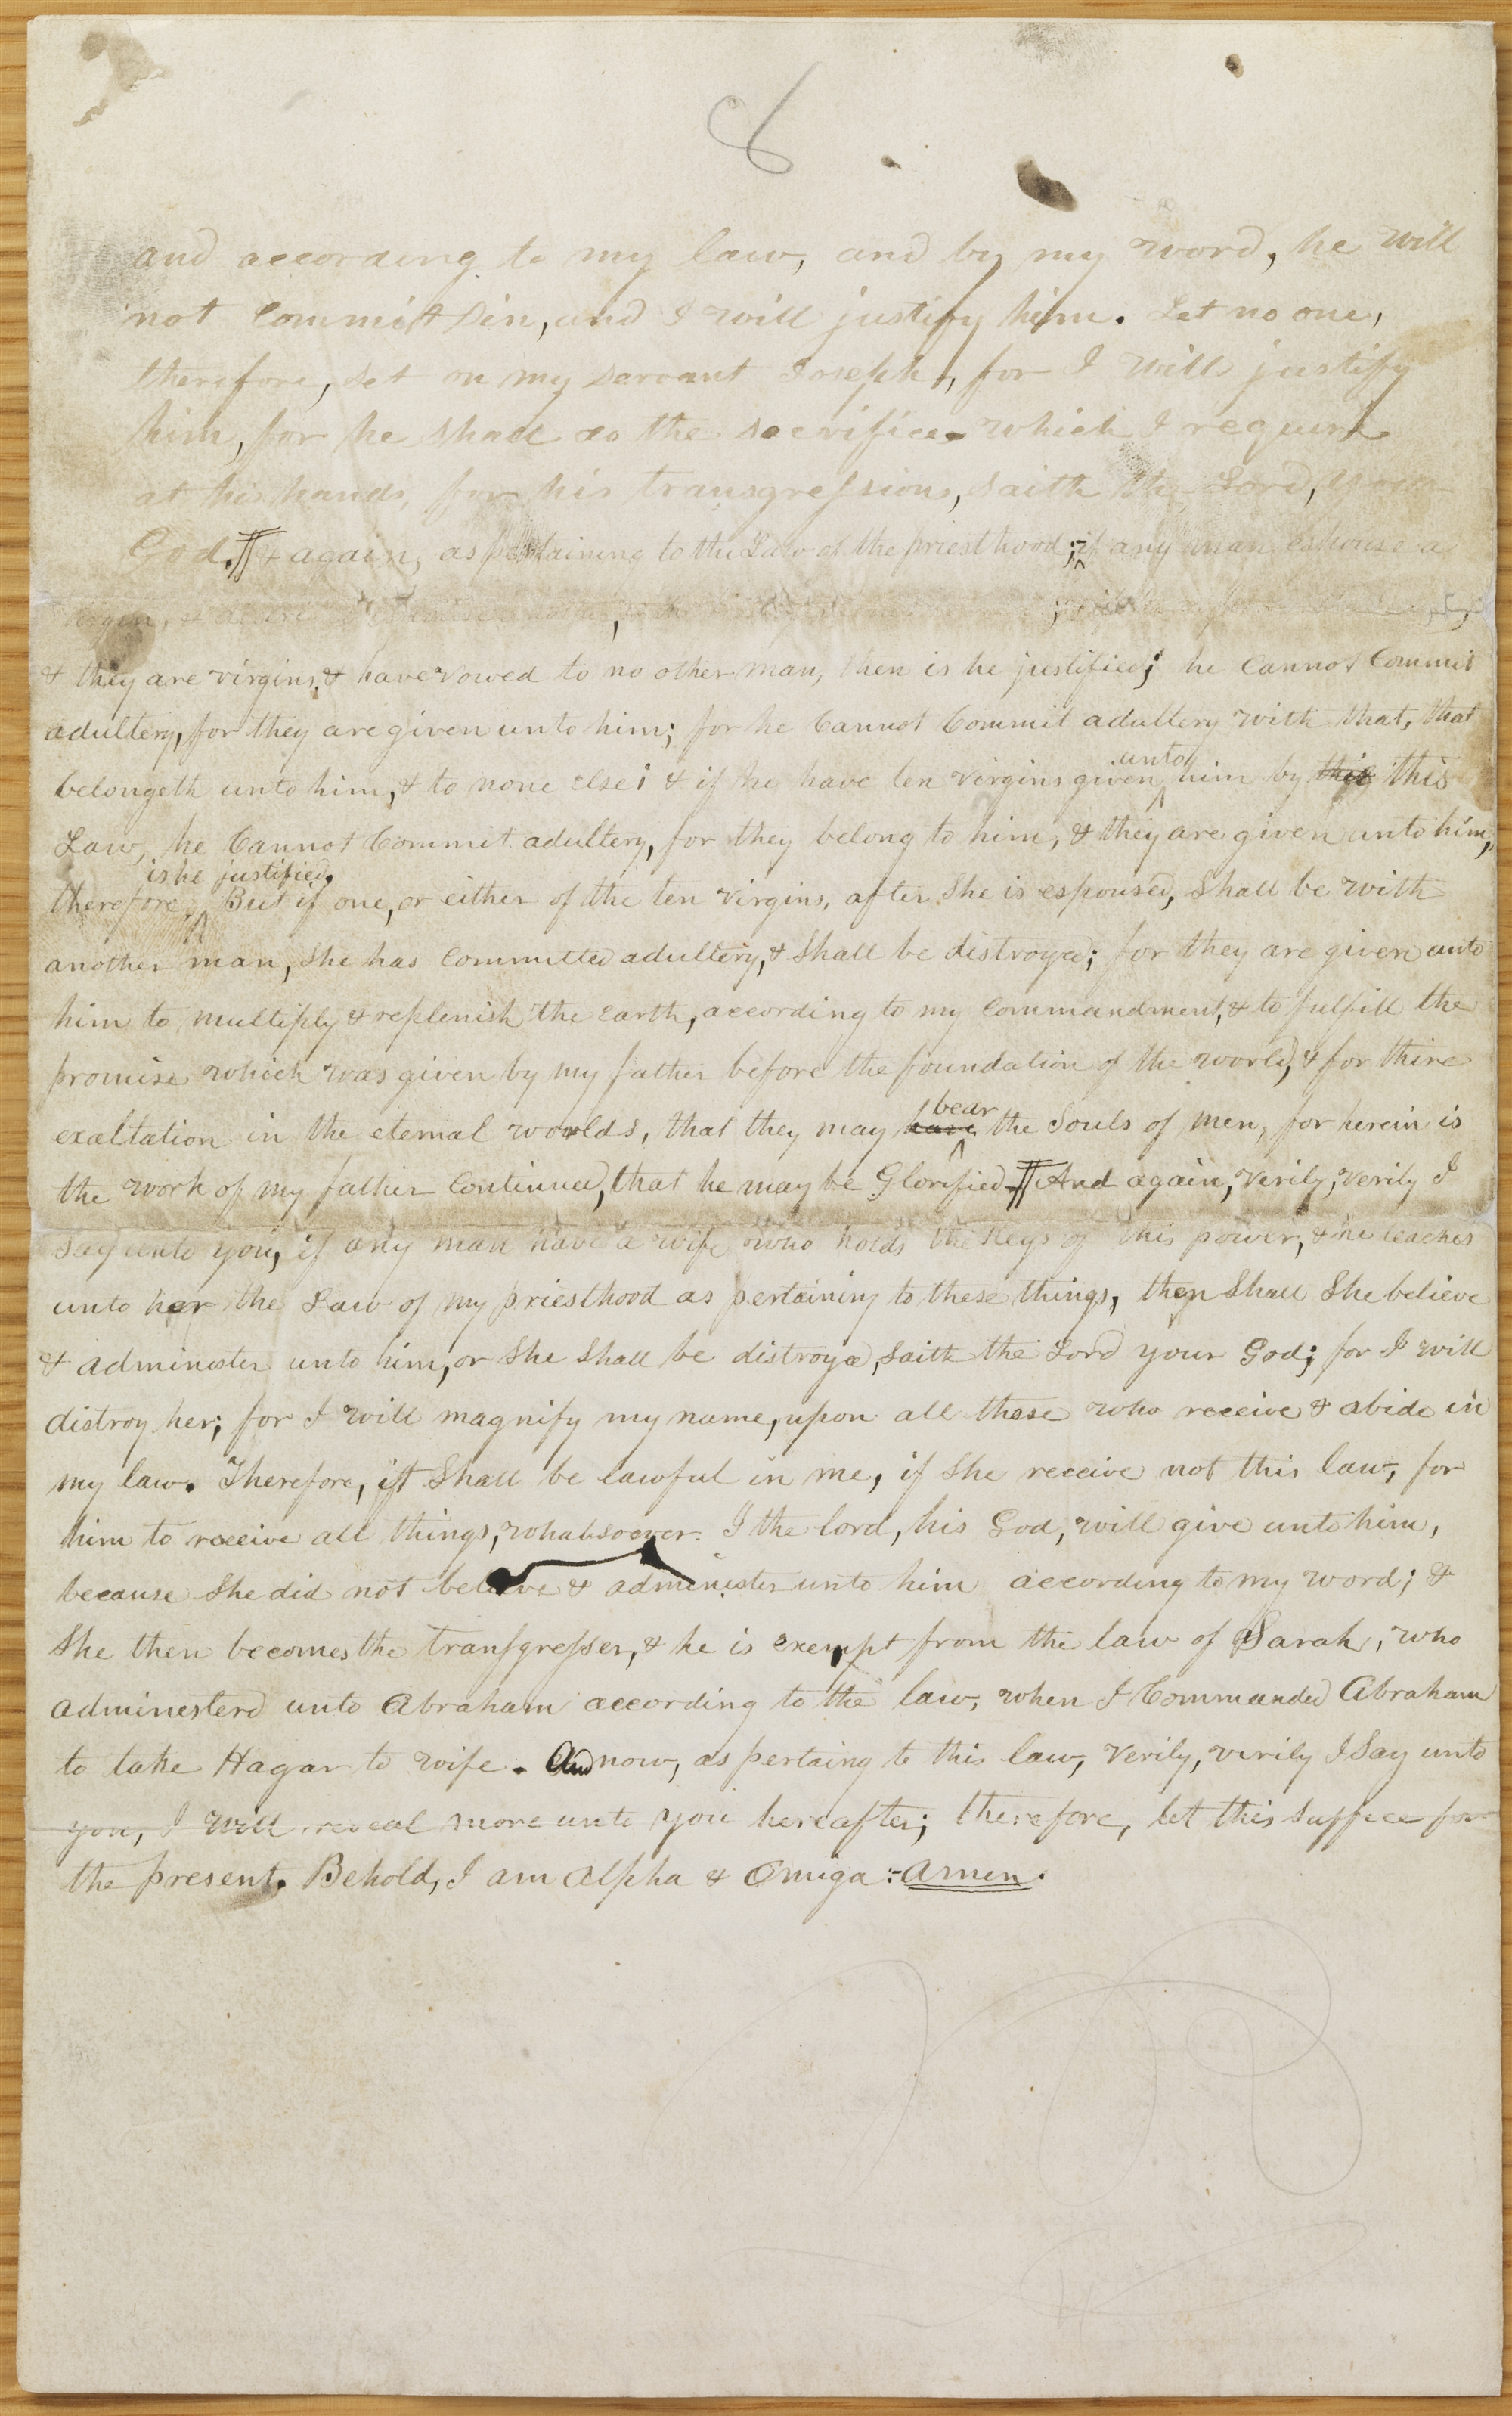 8
and according to my law, and by my word, he will
not Commit Sin, and I will justify him. Let no one,
therefore, set on my servant Joseph, for I will justify
him, for he shall do the sacrifice which I require
at his hands, for his transgressions, saith the Lord, your
God. ¶ & again, as pertaining to the Law of the priesthood; if any man espouse a
virgin, & desire
& they are virgins, & have vowed to no other man, then is he justified; he Cannot Commit
adultery, for they are given unto him; for he Cannot Commit adultery with that, that
belongeth unto him, & to none else; & if he have ten virgins given unto him by this this
Law, he Cannot Commit adultery, for they belong to him, & they are given unto him,
therefore, is he justified. But if one, or either of the ten virgins, after She is espoused, Shall be with
another man, She has Committed adultery, & Shall be distroyed; for they are given unto
him to multiply & replenish the Earth, according to my Commandment, & to fulfill the
promise which was given by my father before the foundation of the world, & for thire
exaltation in the eternal worlds, that they may have bear the Souls of men, for herein is
the work of my father Continued, that he may be Glorified. ¶ And again, verily, verily I
say unto you, if any man have a wife who holds the Keys of this power, & he teaches
unto her the Law of my priesthood as pertaining to these things, then Shall She believe
& administer unto him, or She Shall be distroyed, Saith the Lord your God; for I will
distroy her; for I will magnify my name, upon all those who receive & abide in
my law. Therefore, it Shall be lawful in me, if She receive not this law, for
him to receive all things, whatsoever I the lord, his God, will give unto him,
because She did not believe & administer unto him according to my word; &
She then becomes the transgresser, & he is exempt from the law of Sarah, who
adminesterd unto Abraham according to the law, when I Commanded Abraham
to take Hagar to wife. And now, as pertaing to this law, Verily, verily I Say unto
you, I will reveal more unto you hereafter; therefore, let this Suffece for
the present. Behold, I am Alpha & Omiga:-Amen.